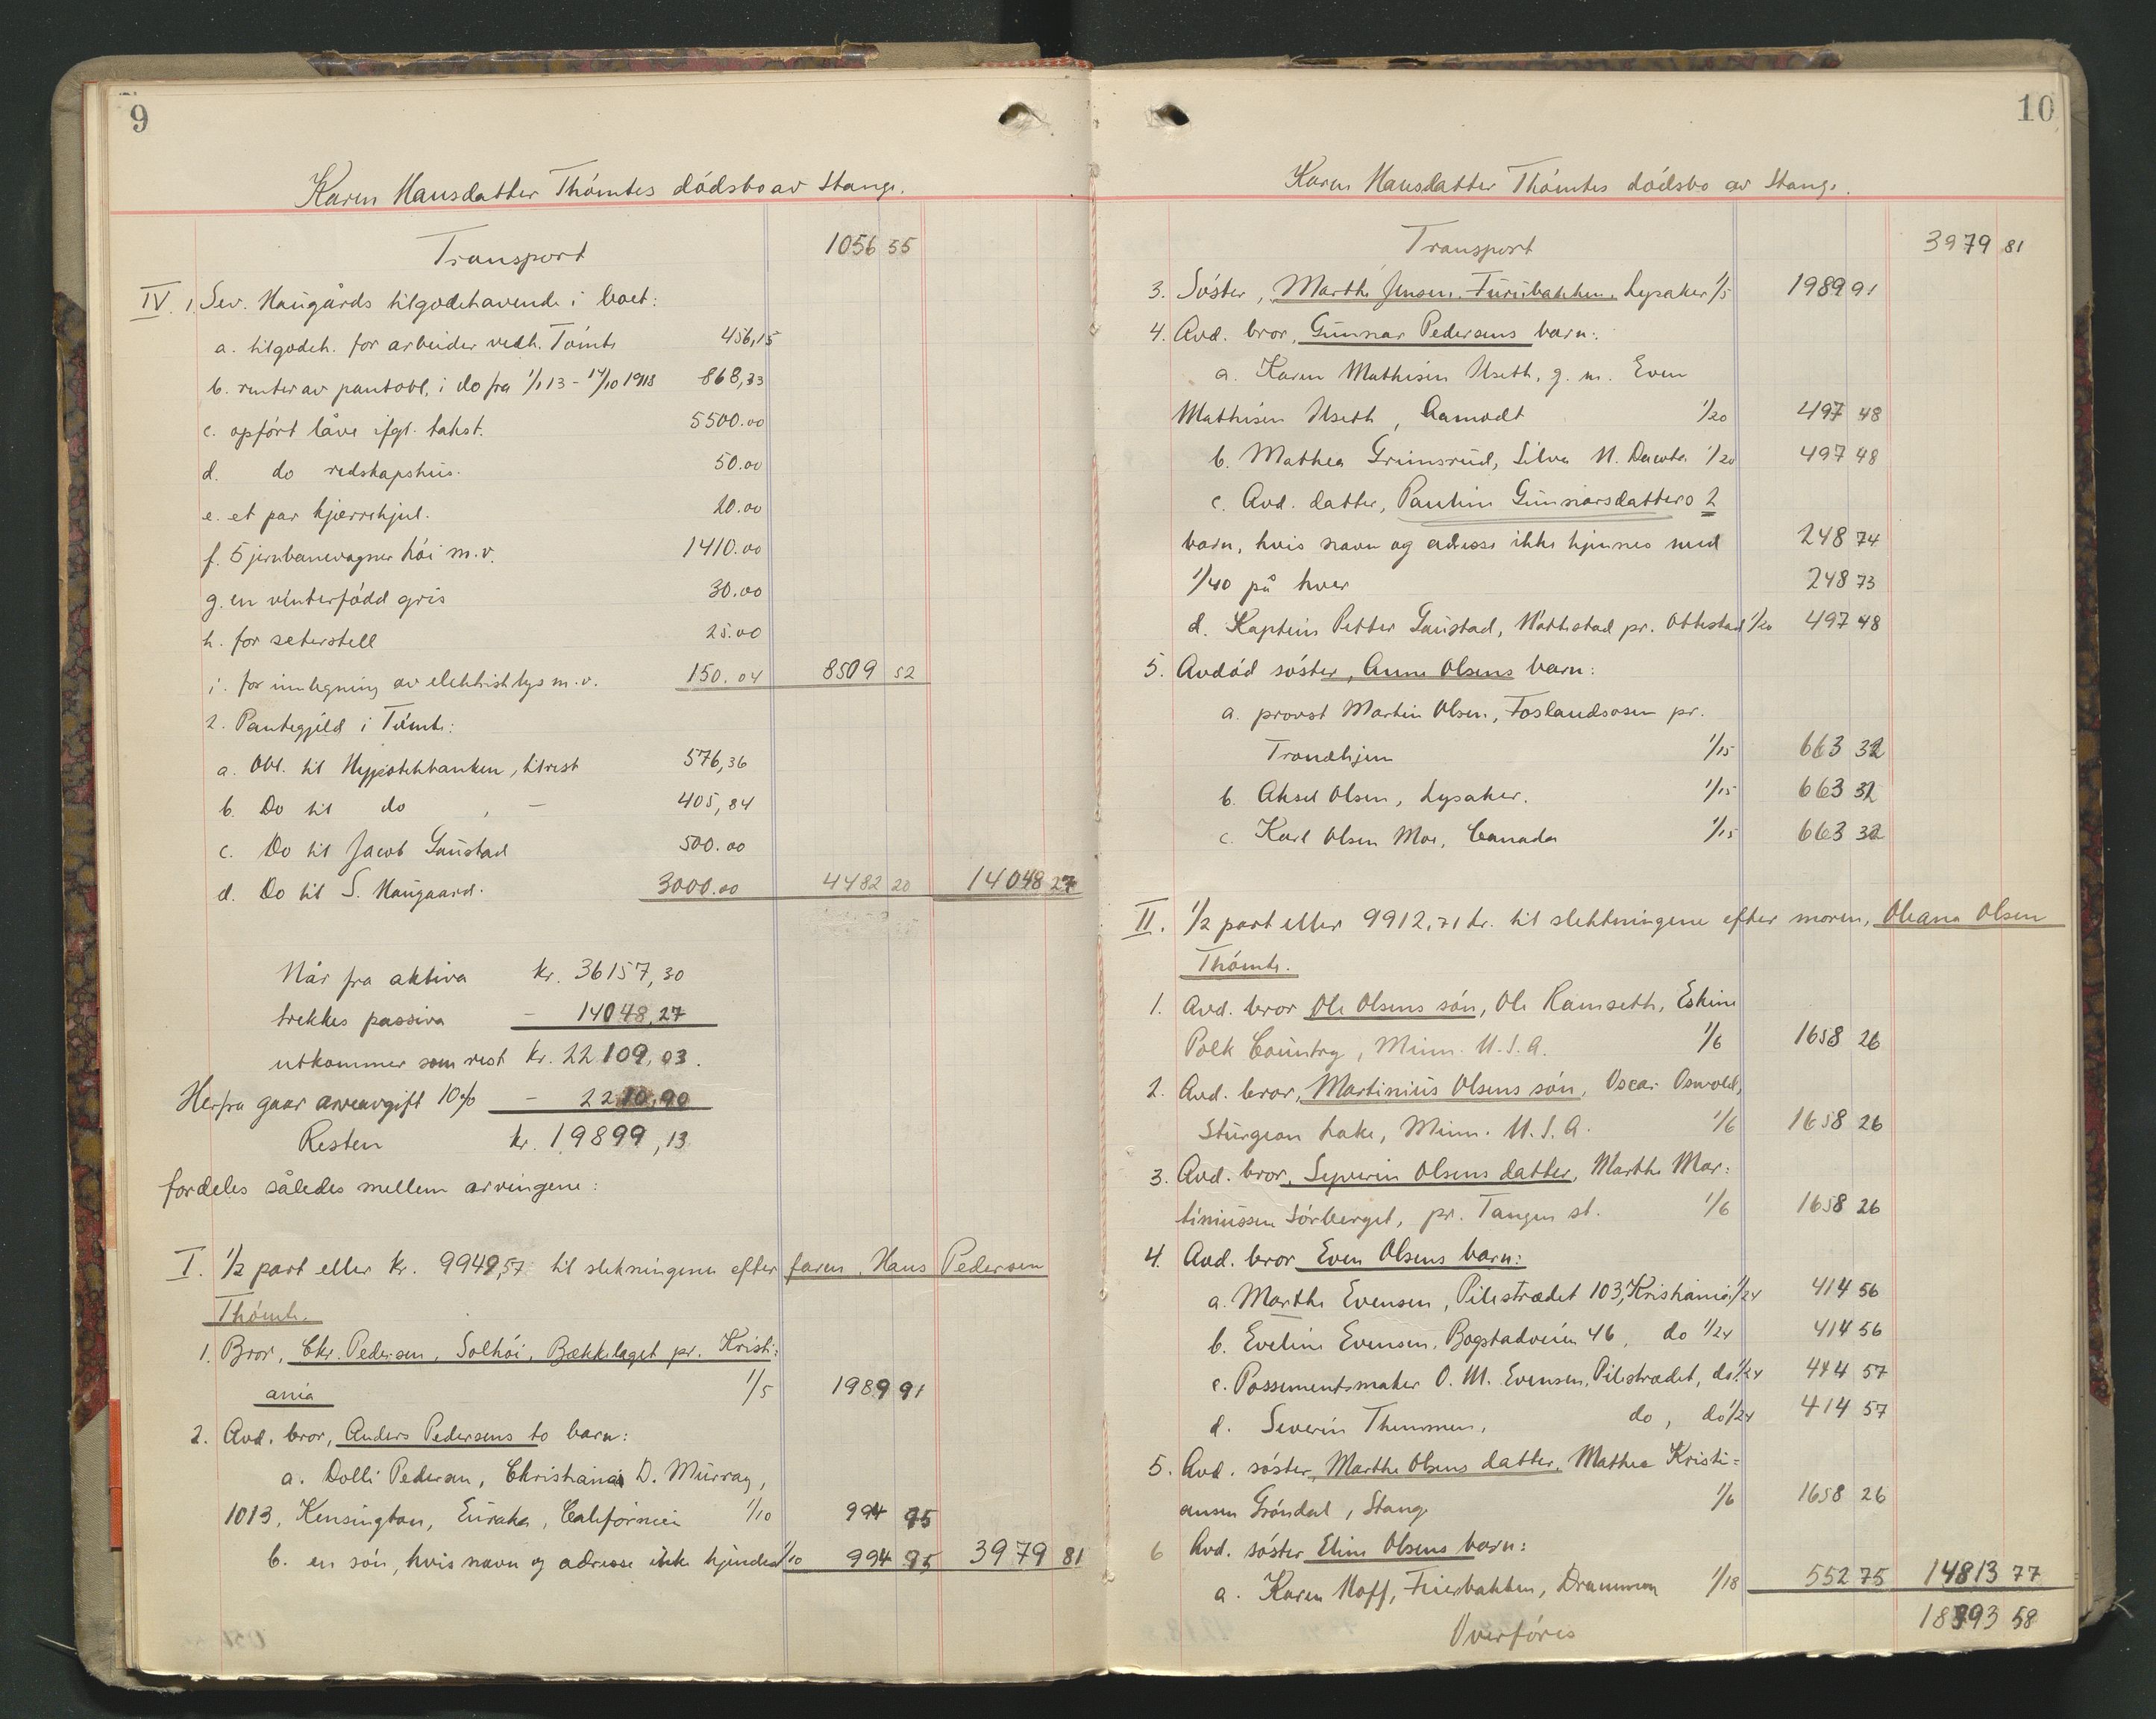 9
Karen Hansdatter Thómtes dódsbo av Stange.
Transport 1056 55
IV. 1. Sev. Haugårds tilgodehavende i boet:
a. tilgodeh. for arbeider vedk. Tómte 456,15
b. renter av pantobl. i do fra 1/1 13 - 14/10 1918 868,33
c. opfórt låve ifgl. takst. 5500.00
d. do redskapshus. 50.00
e. et par kjærrehjul. 20.00
f. 5 jernbanevagner hói m.v. 1410.00
g. en vinterfódd gris 30.00
h. for seterstell 25.00
i. for innlegning av elektrisk lys m.v. 150.04 8509 52
2. Pantegjeld i Tómte:
a. Obl. til Hypotekbanken, tilrest 576,36
b. Do til do , — 405,84
c. Do til Jacob Gaustad 500.00
d. Do til S. Haugaard. 3000.00 4482 20 14048 27
Når fra aktiva kr. 36157,30
trekkes passiva - 14048,27
utkommer som rest kr. 22109,03.
Herfra gaar arveavgift 10% - 2210,90
Resten kr. 19899,13
fordeles således mellem arvingene:
I. 1/2 part eller kr. 9949,57 til slektningene efter faren, Hans Pedersen
Thómte.
1. Bror, Chr. Pedersen, Solhói, Bækkelaget pr. Kristi-
ania 1/5 1989 91
2. Avd. bror, Anders Pedersens to barn:
a. Dolli Pedersen, Christiania D. Murray,
1013, Kensington, Euraka, Californien 1/10 994 95
b. en són, hvis navn og adresse ikke kjendes 1/10 994 95 3979 81
10
Karen Hansdatter Thómtes dódsbo av Stange.
Transport 3979 81
3. Sóster, Marthe Jensen, Furubakken, Lysaker 1/5 1989 91
4. Avd. bror, Gunnar Pedersens barn:
a. Karen Mathisen Useth, g. m. Even
Mathisen Useth, Aamodt 1/20 497 48
b. Mathea Grimsrud, Silva N. Dacota 1/20 497 48
c. Avd. datter, Pauline Gunnarsdatters 2
barn, hvis navn og adresse ikke kjennes med 248 74
1/40 på hver 248 73
d. Kaptein Petter Gaustad, Hattestad pr. Ottestad 1/20 497 48
5. Avdód sóster, Anne Olsens barn:
a. provst Martin Olsen, Foslandsosen pr.
Trondhjem 1/15 663 32
b. Aksel Olsen, Lysaker. 1/15 663 32
c. Karl Olsen Moe, Canada 1/15 663 32
II. 1/2 part eller 9912,71 kr. til slektningene efter moren, Oleana Olsen
Thómte.
1. Avd. bror Ole Olsens són, Ole Ramseth, Eskine
Polk Countrg, Minn. U.S.A. 1/6 1658 26
2. Avd. bror, Martinius Olsens són, Oscar Oswold,
Sturgeon Lake, Minn. U.S.A. 1/6 1658 26
3. Avd. bror, Syverin Olsens datter, Marthe Mar-
tiniussen Sórberget, pr. Tangen st. 1/6 1658 26
4. Avd. bror Even Olsens barn:
a. Marthe Evensen, Pilestrædet 103, Kristiania 1/24 414 56
b. Eveline Evensen, Bogstadveien 46, do 1/24 414 56
c. Possementmaker O. M. Evensen, Pilestrædet, do 1/24 414 57
d. Severin Themmen, do, do 1/24 414 57
5. Avd. sóster, Marthe Olsens datter, Mathea Kristi-
ansen Gróndal, Stange 1/6 1658 26
6 Avd. sóster Eline Olsens barn:
a. Karen Hoff, Feierbakken, Drammen 1/18 552 75 14813 77
Overfóres 18393 58